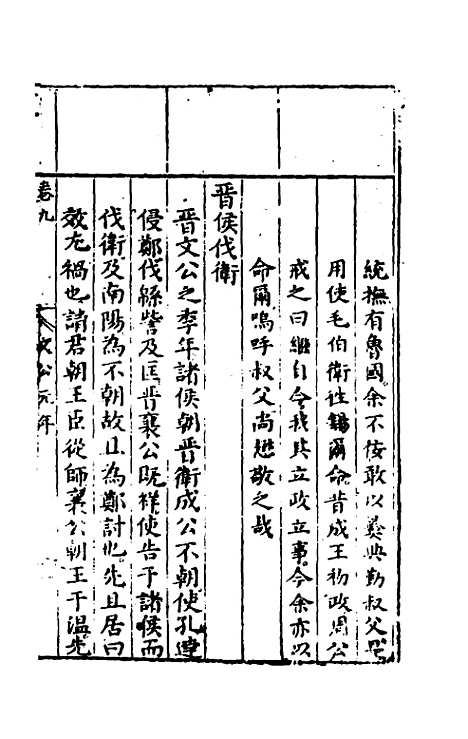 統撫有魯國余不佞敢以彛典勤叔父是
用使毛伯衛徃錫爾命昔成王初政周公
戒之曰繼自今我其立政立事今余亦以
命爾嗚呼叔父尚懋敬之哉
晋侯伐衛
晋文公之季年諸侯朝晋衛成公不朝使孔達
侵鄭伐緜訾及匡晋襄公既祥使告于諸侯而
伐衛及南陽為不朝故且為鄭討也先且居曰
效尤禍也請君朝王臣從師襄公朝王于温先
卷九
文公元年